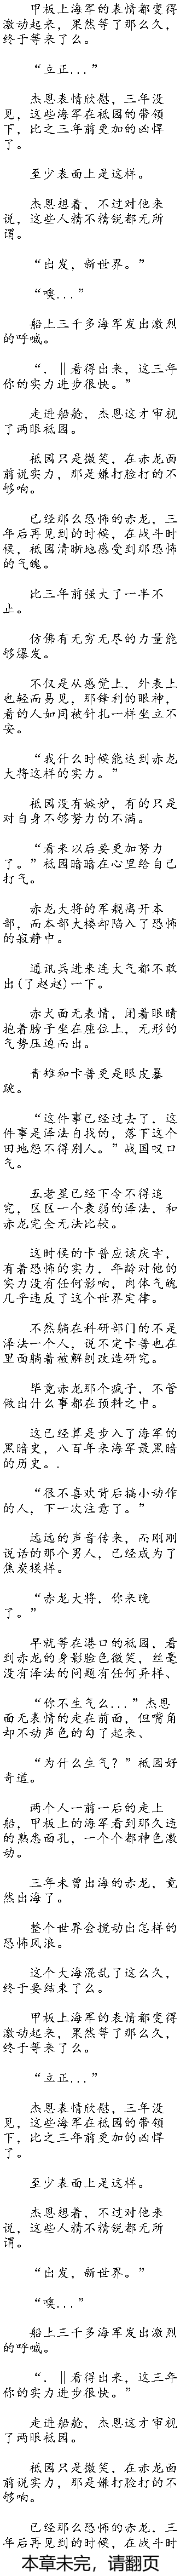 甲板上海军的表情都变得
激动起来，果然等了那么久，
终于等来了么。
“立正...”
杰恩表情欣慰，三年没
见，这些海军在祗园的带领
下，比之三年前更加的凶悍
了。
至少表面上是这样。
杰恩想着，不过对他来
说，这些人精不精锐都无所
谓。
“出发，新世界。”
“噢...”
船上三千多海军发出激烈
的呼喊。
“．‖看得出来，这三年
你的实力进步很快。”
走进船舱，杰恩这才审视
了两眼祗园。
祗园只是微笑，在赤龙面
前说实力，那是嫌打脸打的不
够响。
已经那么恐怖的赤龙，三
年后再见到的时候，在战斗时
候，祗园清晰地感受到那恐怖
的气魄。
比三年前强大了一半不
止。
仿佛有无穷无尽的力量能
够爆发。
不仅是从感觉上，外表上
也轻而易见，那锋利的眼神，
看的人如同被针扎一样坐立不
安。
“我什么时候能达到赤龙
大将这样的实力。”
祗园没有嫉妒，有的只是
对自身不够努力的不满。
“看来以后要更加努力
了。”祗园暗暗在心里给自己
打气。
赤龙大将的军舰离开本
部，而本部大楼却陷入了恐怖
的寂静中。
通讯兵进来连大气都不敢
出(了赵赵)一下。
赤犬面无表情，闭着眼睛
抱着膀子坐在座位上，无形的
气势压迫而出。
青雉和卡普更是眼皮暴
跳。
“这件事已经过去了，这
件事是泽法自找的，落下这个
田地怨不得别人。”战国叹口
气。
五老星已经下令不得追
究，区区一个衰弱的泽法，和
赤龙完全无法比较。
这时候的卡普应该庆幸，
有着恐怖的实力，年龄对他的
实力没有任何影响，肉体气魄
几乎违反了这个世界定律。
不然躺在科研部门的不是
泽法一个人，说不定卡普也在
里面躺着被解剖改造研究。
毕竟赤龙那个疯子，不管
做出什么事都在预料之中。
这已经算是步入了海军的
黑暗史，八百年来海军最黑暗
的历史。.
“很不喜欢背后搞小动作
的人，下一次注意了。”
远远的声音传来，而刚刚
说话的那个男人，已经成为了
焦炭模样。
“赤龙大将，你来晚
了。”
早就等在港口的祗园，看
到赤龙的身影脸色微笑，丝毫
没有泽法的问题有任何异样、
“你不生气么...”杰恩
面无表情的走在前面，但嘴角
却不动声色的勾了起来、
“为什么生气？”祗园好
奇道。
两个人一前一后的走上
船，甲板上的海军看到那久违
的熟悉面孔，一个个都神色激
动。
三年未曾出海的赤龙，竟
然出海了。
整个世界会搅动出怎样的
恐怖风浪。
这个大海混乱了这么久，
终于要结束了么。
甲板上海军的表情都变得
激动起来，果然等了那么久，
终于等来了么。
“立正...”
杰恩表情欣慰，三年没
见，这些海军在祗园的带领
下，比之三年前更加的凶悍
了。
至少表面上是这样。
杰恩想着，不过对他来
说，这些人精不精锐都无所
谓。
“出发，新世界。”
“噢...”
船上三千多海军发出激烈
的呼喊。
“．‖看得出来，这三年
你的实力进步很快。”
走进船舱，杰恩这才审视
了两眼祗园。
祗园只是微笑，在赤龙面
前说实力，那是嫌打脸打的不
够响。
已经那么恐怖的赤龙，三
年后再见到的时候，在战斗时
本章未完，请翻页